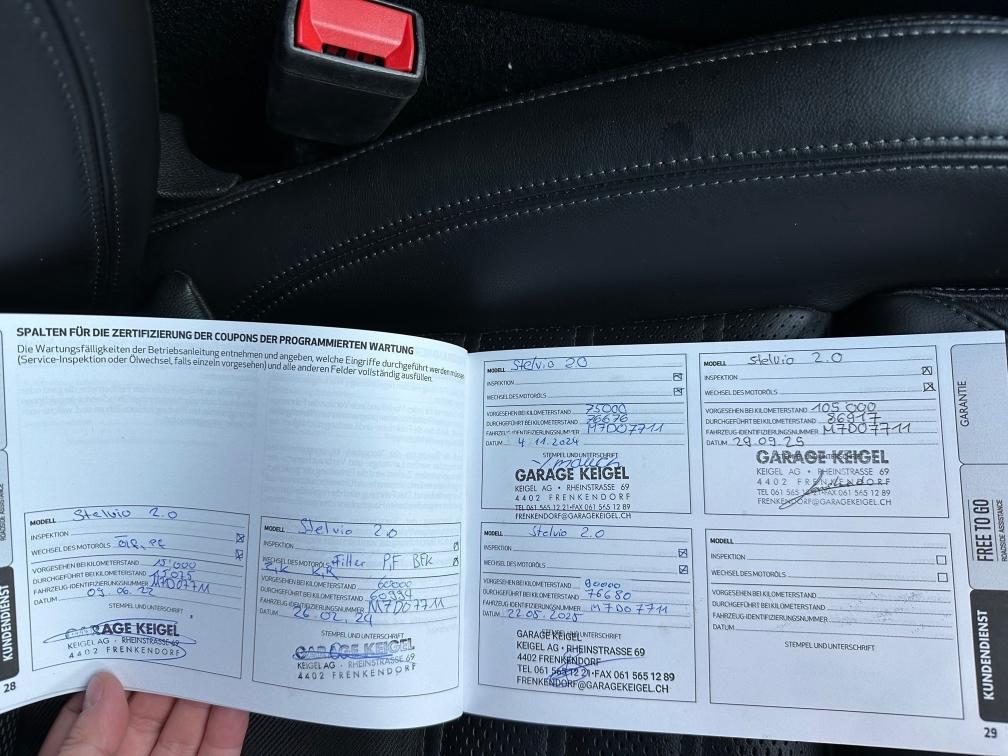 SPALTEN FÜR DIE ZERTIFIZIERUNG DER COUPONS DER PROGRAMMIERTEN WARTUNG
Die Wartungsfälligkeiten der Betriebsanleitung entnehmen und angeben, welche Eingriffe durchgeführt werden müssen
(Service-Inspektion oder Ölwechsel, falls einzeln vorgesehen) und alle anderen Felder vollständig ausfüllen.
MODELL Stelvio 2.0
INSPEKTION
WECHSEL DES MOTORÖLS
VORGESEHEN BEI KILOMETERSTAND 15'000
DURCHGEFÜHRT BEI KILOMETERSTAND 15075
FAHRZEUG-IDENTIFIZIERUNGSNUMMER M7D07711
DATUM 09.06.22
STEMPEL UND UNTERSCHRIFT
GARAGE KEIGEL
KEIGEL AG • RHEINSTRASSE 69
4402 FRENKENDORF
MODELL Stelvio 2.0
INSPEKTION
WECHSEL DES MOTORÖLS Filter PF BFK
VORGESEHEN BEI KILOMETERSTAND 60000
DURCHGEFÜHRT BEI KILOMETERSTAND 60994
FAHRZEUG-IDENTIFIZIERUNGSNUMMER M7D07711
DATUM 26.02.24
STEMPEL UND UNTERSCHRIFT
GARAGE KEIGEL
KEIGEL AG • RHEINSTRASSE 69
4402 FRENKENDORF
28
KUNDENDIENST
ROADSIDE ASSISTANCE
MODELL Stelvio 2.0
INSPEKTION
WECHSEL DES MOTORÖLS
VORGESEHEN BEI KILOMETERSTAND 75000
DURCHGEFÜHRT BEI KILOMETERSTAND 76676
FAHRZEUG-IDENTIFIZIERUNGSNUMMER M7D07711
DATUM 4.11.2024
STEMPEL UND UNTERSCHRIFT
GARAGE KEIGEL
KEIGEL AG • RHEINSTRASSE 69
4402 FRENKENDORF
TEL 061 565 12 21•FAX 061 565 12 89
FRENKENDORF@GARAGEKEIGEL.CH
MODELL Stelvio 2.0
INSPEKTION
WECHSEL DES MOTORÖLS
VORGESEHEN BEI KILOMETERSTAND 105000
DURCHGEFÜHRT BEI KILOMETERSTAND 86917
FAHRZEUG-IDENTIFIZIERUNGSNUMMER M7D07711
DATUM 29.09.25
GARAGE KEIGEL
KEIGEL AG • RHEINSTRASSE 69
4402 FRENKENDORF
TEL 061 565 12 21•FAX 061 565 12 89
FRENKENDORF@GARAGEKEIGEL.CH
MODELL Stelvio 2.0
INSPEKTION
WECHSEL DES MOTORÖLS
VORGESEHEN BEI KILOMETERSTAND 90000
DURCHGEFÜHRT BEI KILOMETERSTAND 76680
FAHRZEUG-IDENTIFIZIERUNGSNUMMER M7D07711
DATUM 22.05.2025
STEMPEL UND UNTERSCHRIFT
GARAGE KEIGEL
KEIGEL AG • RHEINSTRASSE 69
4402 FRENKENDORF
TEL 061 565 12 21•FAX 061 565 12 89
FRENKENDORF@GARAGEKEIGEL.CH
MODELL
INSPEKTION
WECHSEL DES MOTORÖLS
VORGESEHEN BEI KILOMETERSTAND
DURCHGEFÜHRT BEI KILOMETERSTAND
FAHRZEUG-IDENTIFIZIERUNGSNUMMER
DATUM
STEMPEL UND UNTERSCHRIFT
GARANTIE
FREE TO GO
ROADSIDE ASSISTANCE
KUNDENDIENST
29